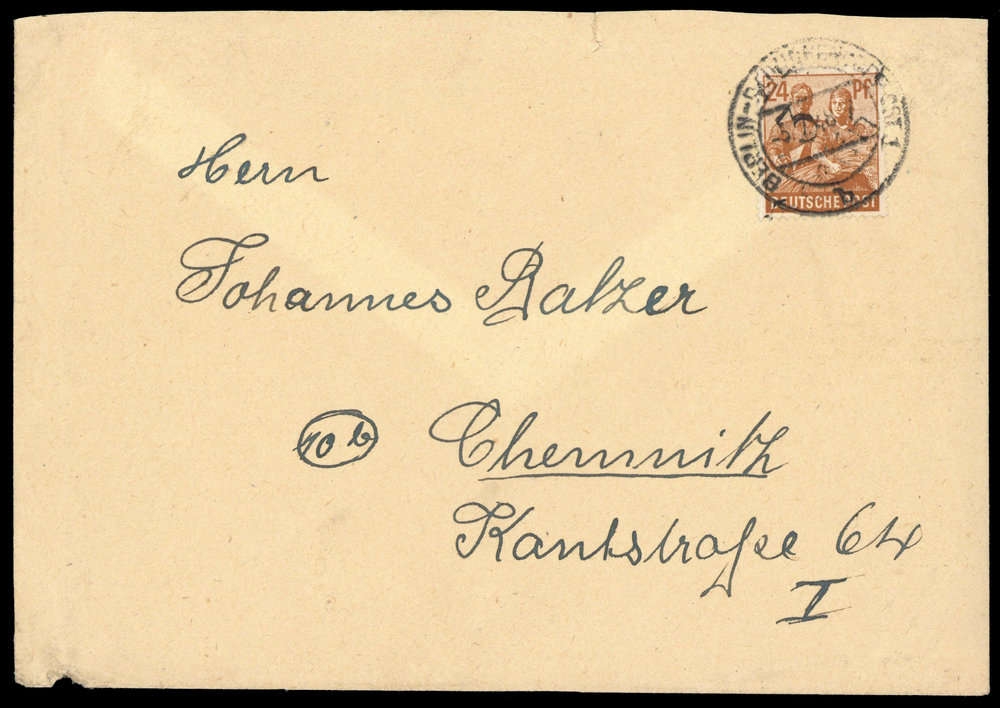 24 Pf.
DEUTSCHE POST
BERLIN-
b
Hern
Johannes Balzer
10 b
Chemnitz
Kantstraße 64
I